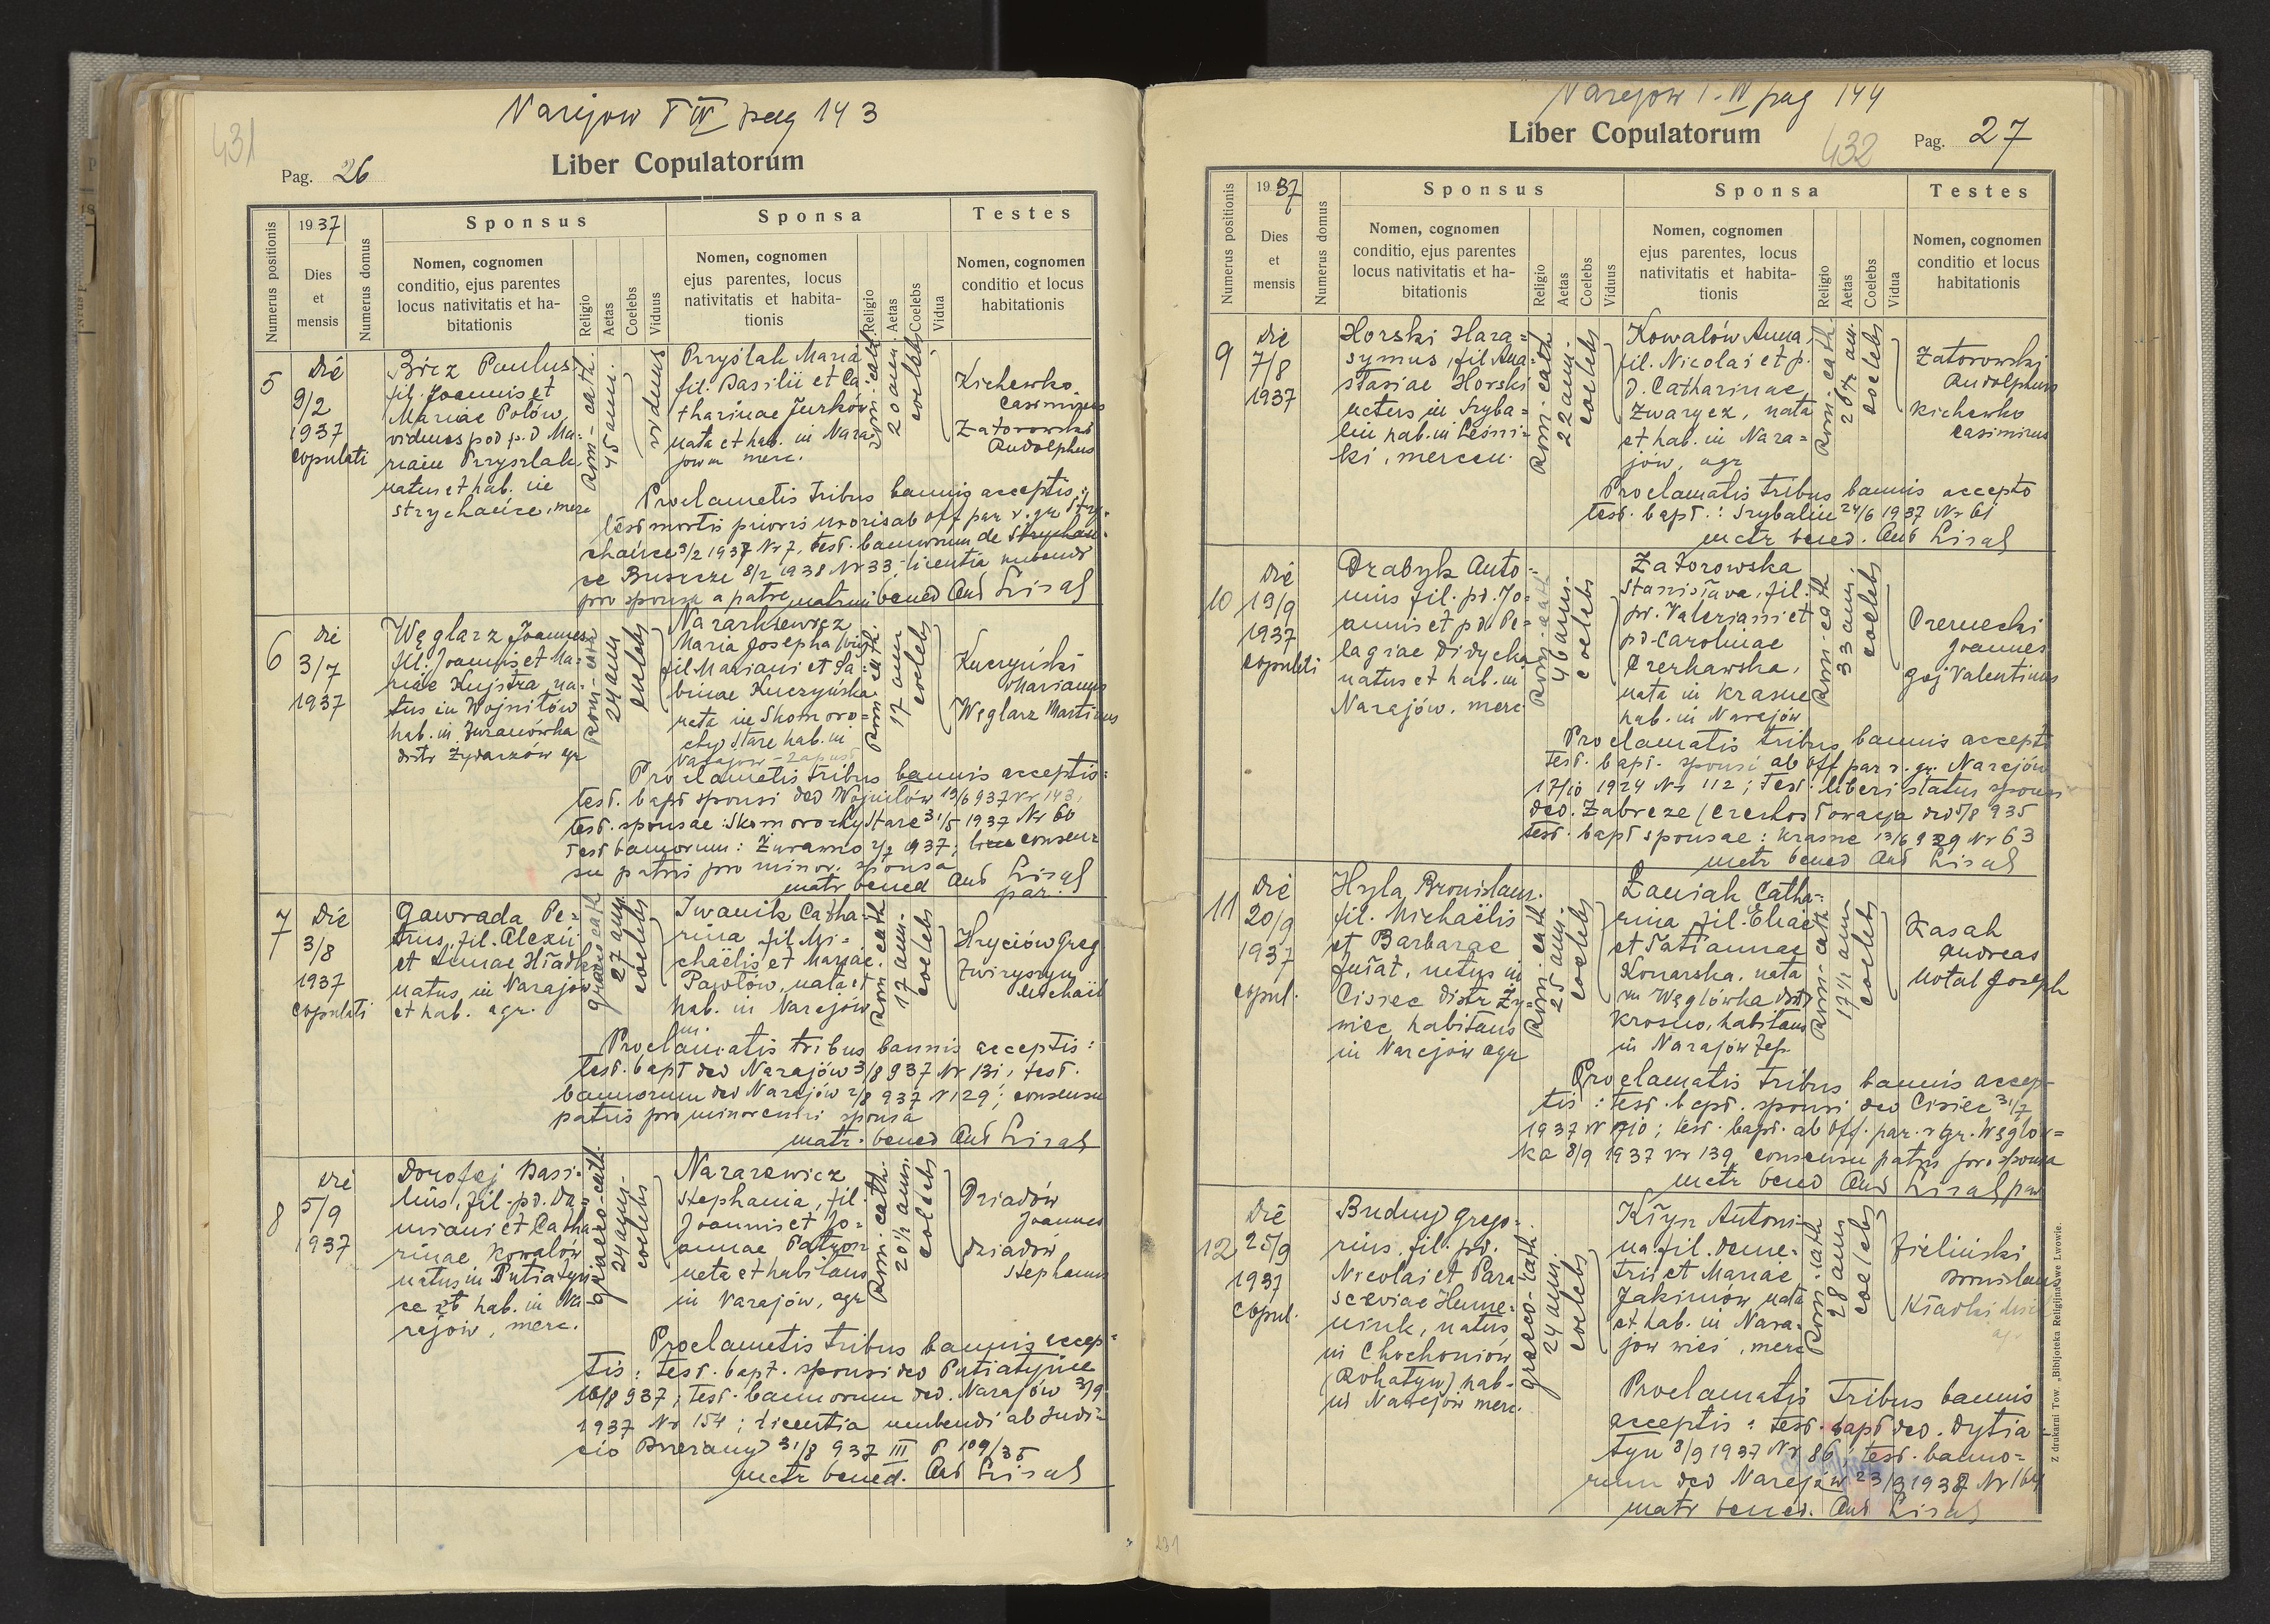 Narajow T IV pag 143
431
Pag. 26
Liber Copulatorum
Numerus positionis
1937
Dies
et
mensis
Numerus domus
Sponsus
Nomen, cognomen
conditio, ejus parentes
locus nativitatis et ha-
bitationis
Religio
Aetas
Coelebs
Viduus
Sponsa
Nomen, cognomen
ejus parentes, locus
nativitatis et habita-
tionis
Religio
Aetas
Coelebs
Vidua
Testes
Nomen, cognomen
conditio et locus
habitationis
5
die
9/2
1937
copulati
Paulus
fil. Joannis et
Mariae Polów,
viduus p. d Ma-
riam Przyszlak,
natus et hab. in
Strychańce, merc
Rom-cath.
45 ann.
viduus
Przyślak Maria
fil. Basilii et Ca-
tharinae Jurków
nata et hab. in Nara-
jow merc.
Rom-cath.
20 ann.
coelebs
Kichewko
Casimirus
Zatorowski
Rudolphus
Proclamatis tribus bannis acceptis:
test mortis prioris uxoris ab off par r. gr Stry-
chańce 9/2 1937 Nr 7, test. bannorum de
ce Buszcze 8/2 1938 Nr 33, licentia nubendi
pro sponsa a patre matrim bened Ant Lisal
6
die
3/7
1937
Węglarz Joannes
fil. Joannis et Ma-
riae Kujstra, na-
tus in Wojniłów
hab. in Żurawówka
distr Żydaczów agr
Rom-cath
24 ann
coelebs
Nazarkiewicz
Maria Josepha
fil Mariani et Sa-
binae Kuczyńska
nata in Skomoro-
chy Stare hab. in
Narajow
Rom cath.
17 ann
coelebs
Kuczyński
Marianus
Węglarz Martinus
Proclamatis tribus bannis acceptis:
test. bapt sponsi ded Wojniłów 19/6 937 Nr 143,
test. sponsae: Skomorochy Stare 31/5 1937 Nr 60
test bannorum: Żurawno 2/7 1937; consen-
su patris pro minor. sponsa
matr bened Ant Lisal
par.
7
Die
3/8
1937
copulati
Gawrada Pe-
trus, fil. Alexii
et Annae Hładki
natus in Narajow
et hab. agr.
graeco cath
27 ann
coelebs
Iwanik Catha-
rina fil. Mi-
chaëlis et Mariae
Pawłów, nata et
hab. in Narajów
m.
Rom cath
17 ann.
coelebs
Hryciów Greg
Zwiryszyn
Michaël
Proclamatis tribus bannis acceptis:
test. bapt ded Narajów 3/8 937 Nr 131, test.
bannorum ded Narajów 2/8 937 N 129; consensu
patris pro minorenni sponsa
matr. bened Ant Lisal
8
die
5/9
1937
Dorofej Basi-
lius, fil. pd. Da-
miani et Catha-
rinae Kowalów
natus in Putiatyn-
ce et hab. in Na-
rajow, merc.
graeco-cath.
24 ann.
coelebs
Nazarewicz
Stephania, fil.
Joannis et Jo-
annae Patron
nata et habitans
in Narajów, agr
Rom. cath.
20 1/2 ann.
coelebs
Dziadów
Joannes
Dziadów
Stephanus
Proclamatis tribus bannis accep-
tis: test. bapt. sponsi ded Putiatyńce
16/8 937; test. bannorum ded. Narajów 3/9
1937 Nr 154; licentia nubendi ab Judi-
cio Brzeżany 31/8 937 III P 109/35
matr bened. Ant Lisal
Narajow T. IV pag 144
Liber Copulatorum
432
Pag. 27
Numerus positionis
1937
Dies
et
mensis
Numerus domus
Sponsus
Nomen, cognomen
conditio, ejus parentes
locus nativitatis et ha-
bitationis
Religio
Aetas
Coelebs
Viduus
Sponsa
Nomen, cognomen
ejus parentes, locus
nativitatis et habita-
tionis
Religio
Aetas
Coelebs
Vidua
Testes
Nomen, cognomen
conditio et locus
habitationis
9
die
7/8
1937
Horski Hara-
symus, fil. Ana-
stasiae Horski
natus in Szyba-
lin hab. in Leśni-
ki, mercen.
Rom-cath
22 ann.
coelebs
Kowalów Anna,
fil. Nicolai et p.
d. Catharinae
Zwarycz, nata
et hab. in Nara-
jów, agr
Rom-cath.
coelebs
Zatorowski
Rudolphus
Kichewko
Casimirus
Proclamatis tribus bannis accepto
test. bapt.: Szybalin 24/6 1937 Nr 61
matr bened. Ant Lisal
10
die
19/9
1937
copulati
Drabyk Anto-
nius fil. pd. Jo-
annis et pd. Pe-
lagiae Didycka
natus et hab. in
Narajów. merc
Rom-cath
46 ann.
coelebs
Zatorowska
Stanisłava, fil.
pd. Valeriani et
pd. Carolinae
Czerkawska,
nata in Krasne
hab. in Narajów
Rom-cath
33 ann.
coelebs
Joannes
Goj Valentinus
Proclamatis tribus bannis accepto
test. bapt. sponsi ab off par r. gr. Narajów
17/10 1924 Nr 112; test. liberi status sponsi
ded. Zabrze (Czechosłowacja ded 5/8 935
test. bapt sponsae: Krasne 13/6 929 Nr 63
matr bened Ant Lisal
11
die
20/9
1937
copul.
Hyla Bronislaus.
fil. Michaëlis
et Barbarae
Jułat, natus in
Cisiec distr Ży-
wiec habitans
in Narajów agr
Rom cath
25 ann.
coelebs
Łaniak Catha-
rina fil. Eliae
et Tatiannae
Konarska, nata
in Węglówka distr
Krosno, habitans
in Narajów
Rom-cath
17 1/2 ann
coelebs
Kasak
Andreas
Notal Joseph
Proclamatis tribus bannis accep-
tis: test. bapt. sponsi ded Cisiec 31/7
1937 N 710; test. bapt. ab off. par. r gr. Węglów-
ka 8/9 1937 Nr 139, consensu patris pro sponsa
matr bened Ant Lisal par
12
Die
25/9
1937
copul.
Budny Grego-
rius, fil. pd.
Nicolai et Para-
sceviae Hume-
niuk, natus
in Chochoniów
(Rohatyn) hab-
in Narajów merc.
graeco-cath.
24 ann.
coelebs
Kłyn Antoni-
na fil. Deme-
trii et Mariae
Jakimów nata
et hab. in Nara-
jow wieś, merc
Rom-cath
28 ann
coelebs
Zieliński
Bronislaus
Kładki
Proclamatis Tribus bannis
acceptis: test. bapt ded. Dytia-
tyn 3/9 1937 Nr 86, test. banno-
rum ded Narajów 23/9 1937 Nr 164
matr bened. Ant Lisal
Z drukarni Tow. „Bibljoteka Religijna" we Lwowie.
231